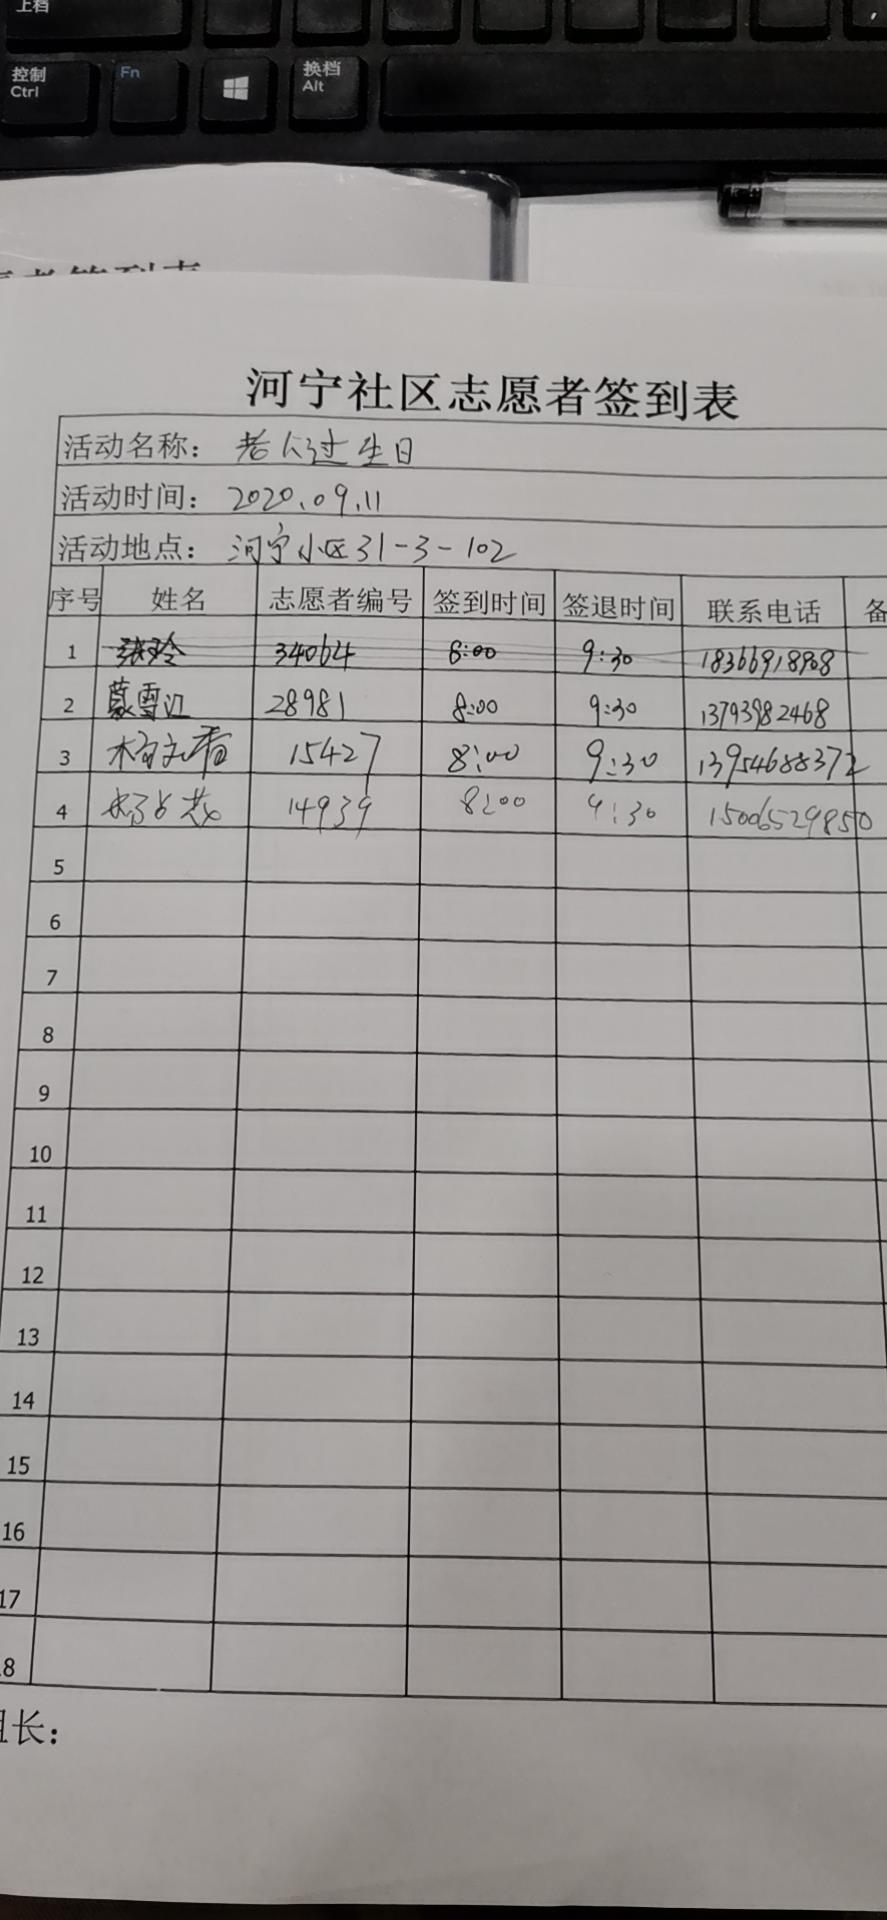 上档
控制
Ctrl
Fn
换档
Alt
者签到表
河宁社区志愿者签到表
活动名称: 老人过生日
活动时间: 2020.09.11
活动地点: 河宁小区31-3-102
序号 姓名 志愿者编号 签到时间 签退时间 联系电话 备
1 张玲 34064 8:00 9:30 18366918908
2 28981 8:00 9:30 13793982468
3 15427 8:00 9:30 13954688372
4 14939 8:00 9:30 15006529850
5
6
7
8
9
10
11
12
13
14
15
16
17
18
组长: